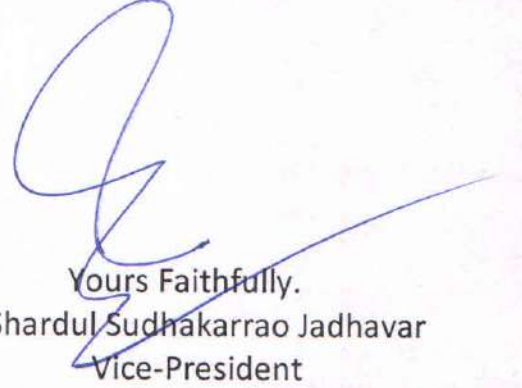 Yours Faithfully.
Shardul Sudhakarrao Jadhavar
Vice-President